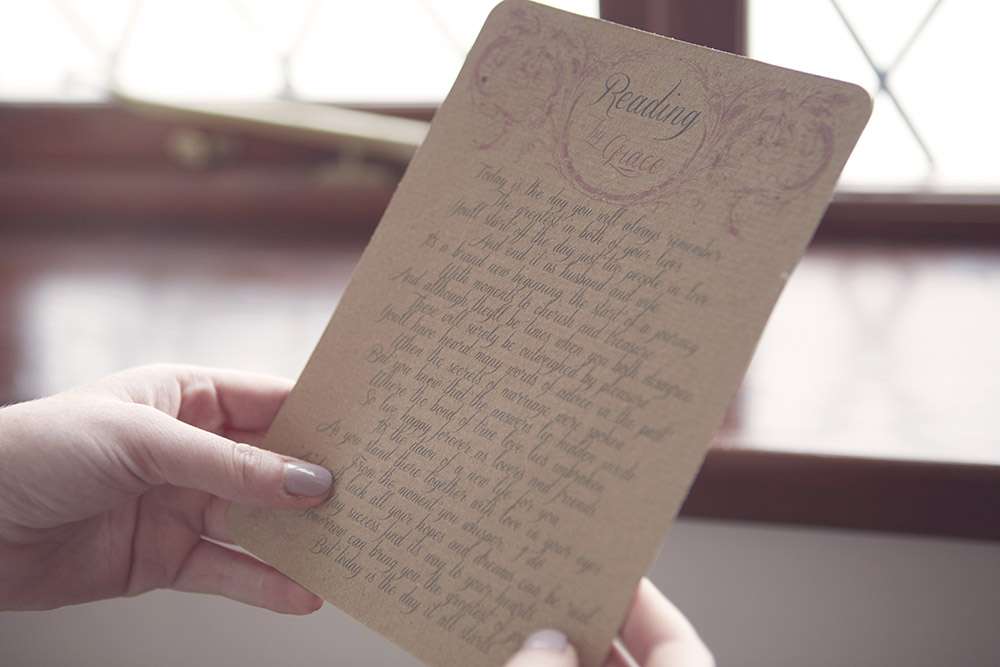 Reading
by
Grace
Today is the day you will always remember
The greatest in both of your lives
You'll start off the day just two people in love
And end it as husband and wife
It's a brand new beginning the start of a journey
With moments to cherish and treasure
And although they'll be times when you both disagree
These will surely be outweighed by pleasure
You'll have heard many words of advice in the past
When the secrets of marriage were spoken
But you know that the answers lie hidden inside
Where the bond of true love lies unbroken
So live happy forever as lovers and friends
It's the dawn of a new life for you
As you stand there together with love in your eyes
From the moment you whisper 'I do'
luck all your hopes and dreams can be real
success find it's way to your hearts
Tomorrow can bring you the greatest of
But today is the day it all starts